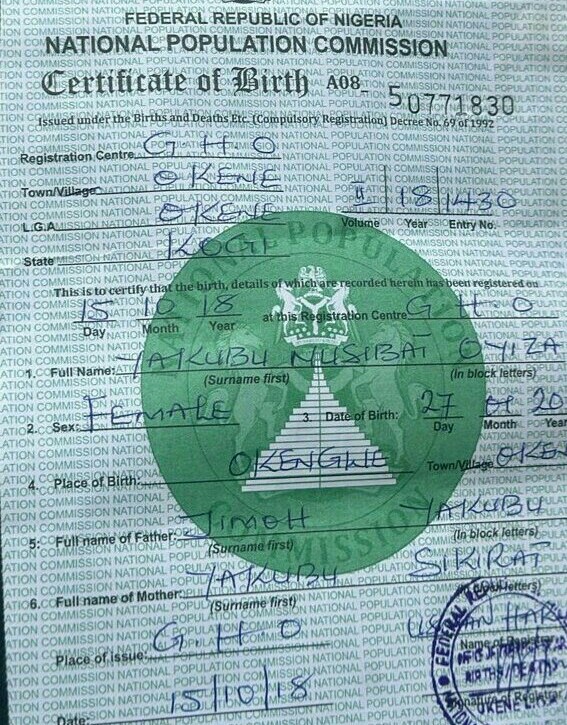 FEDERAL REPUBLIC OF NIGERIA
NATIONAL POPULATION COMMISSION
Certificate of Birth A08- 50771830
Issued under the Births and Deaths Etc. (Compulsory Registration) Decree No. 69 of 1992
Registration Centre G H O
Town/Village OKENE
L.G.A OKENE II 18 1430
Volume Year Entry No.
State KOGI
This is to certify that the birth, details of which are recorded herein has been registered on
15 10 18 at this Registration Centre G H O
Day Month Year
1. Full Name: YAKUBU NUSIBAT OYIZA
(Surname first) (In block letters)
2. Sex: FEMALE 3. Date of Birth: 27 01 20
Day Month Year
4. Place of Birth: OKENGWE Town/Village OKEN
5: Full name of Father: JIMOH YAKUBU
(Surname first) (In block letters)
6. Full name of Mother: YAKUBU SIKIRAT
(Surname first) letters)
Place of Issue: G.H.O
Name of Registrar
Date: 15/10/18
Signature of Registrar
NATIONAL POPULATION COMMISSION